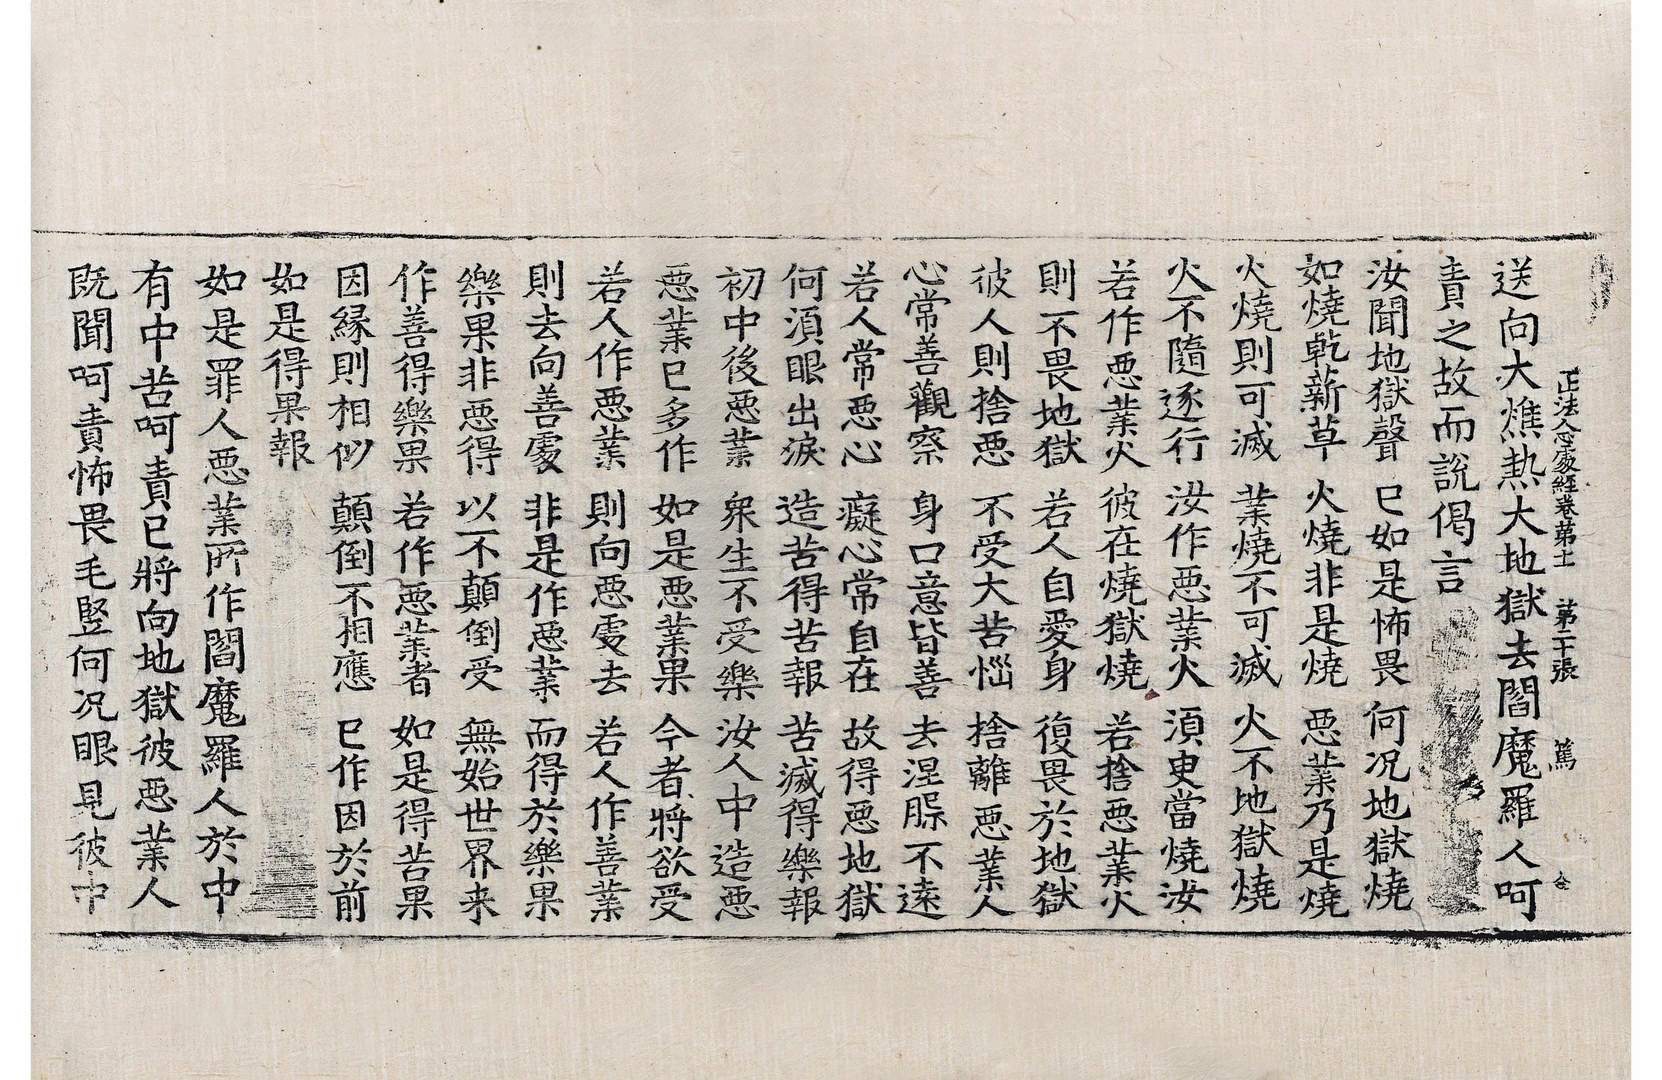 正法念處經卷第十一 第二十張 篤
送向大燋熱大地獄去閻魔羅人呵
責之故而說偈言
汝聞地獄聲 已如是怖畏 何况地獄燒
如燒乾薪草 火燒非是燒 惡業乃是燒
火燒則可滅 業燒不可滅 火不地獄燒
火不隨逐行 汝作惡業火 湏臾當燒汝
若作惡業火 彼在燒獄燒 若捨惡業火
則不畏地獄 若人自愛身 復畏於地獄
彼人則捨惡 不受大苦惱 捨離惡業人
心常善觀察 身口意皆善 去涅槃不遠
若人常惡心 癡心常自在 故得惡地獄
何湏眼出淚 造苦得苦報 苦滅得樂報
初中後惡業 衆生不受樂 汝人中造惡
惡業已多作 如是惡業果 今者將欲受
若人作惡業 則向惡處去 若人作善業
則去向善處 非是作惡業 而得於樂果
樂果非惡得 以不顛倒受 無始世界来
作善得樂果 若作惡業者 如是得苦果
因緣則相似 顛倒不相應 已作因於前
如是得果報
如是罪人惡業所作閻魔羅人於中
有中苦呵責已將向地獄彼惡業人
既聞呵責怖畏毛竪何况眼見彼中